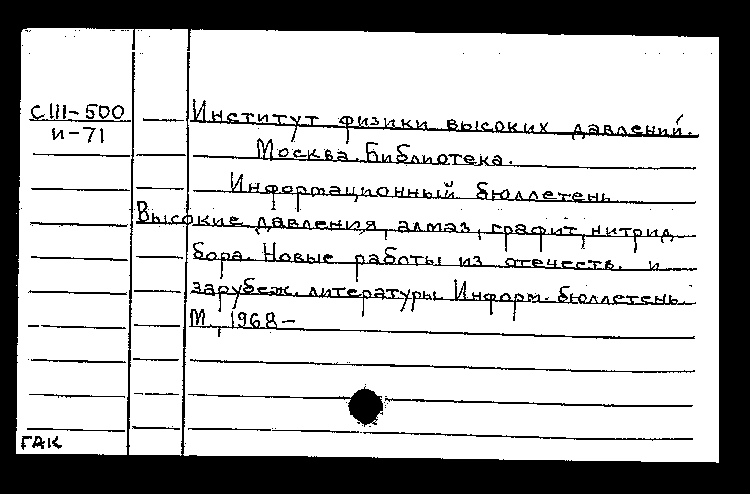 СІІІ-500
И-71
Институт физики высоких давлений.
Москва. Библиотека.
Информационный бюллетень
Высокие давления, алмаз, графит, нитрид
бора. Новые работы из отечеств. и
зарубеж. литературы. Информ. бюллетень.
М., 1968-
ГАК